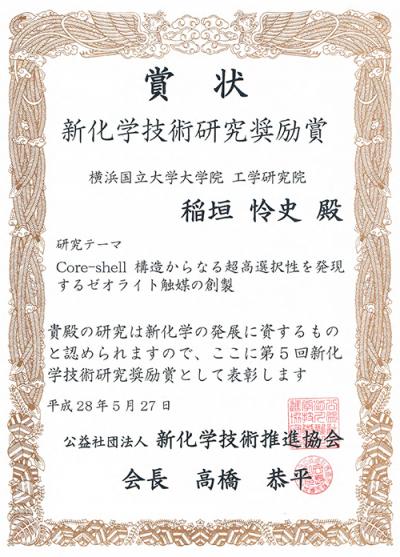 賞状
新化学技術研究奨励賞
横浜国立大学大学院 工学研究院
稲垣 怜史 殿
研究テーマ
Core-shell 構造からなる超高選択性を発現
するゼオライト触媒の創製
貴殿の研究は新化学の発展に資するもの
と認められますので、ここに第5回新化
学技術研究奨励賞として表彰します
平成28年5月27日
公益社団法人 新化学技術推進協会
会長 高橋 恭平